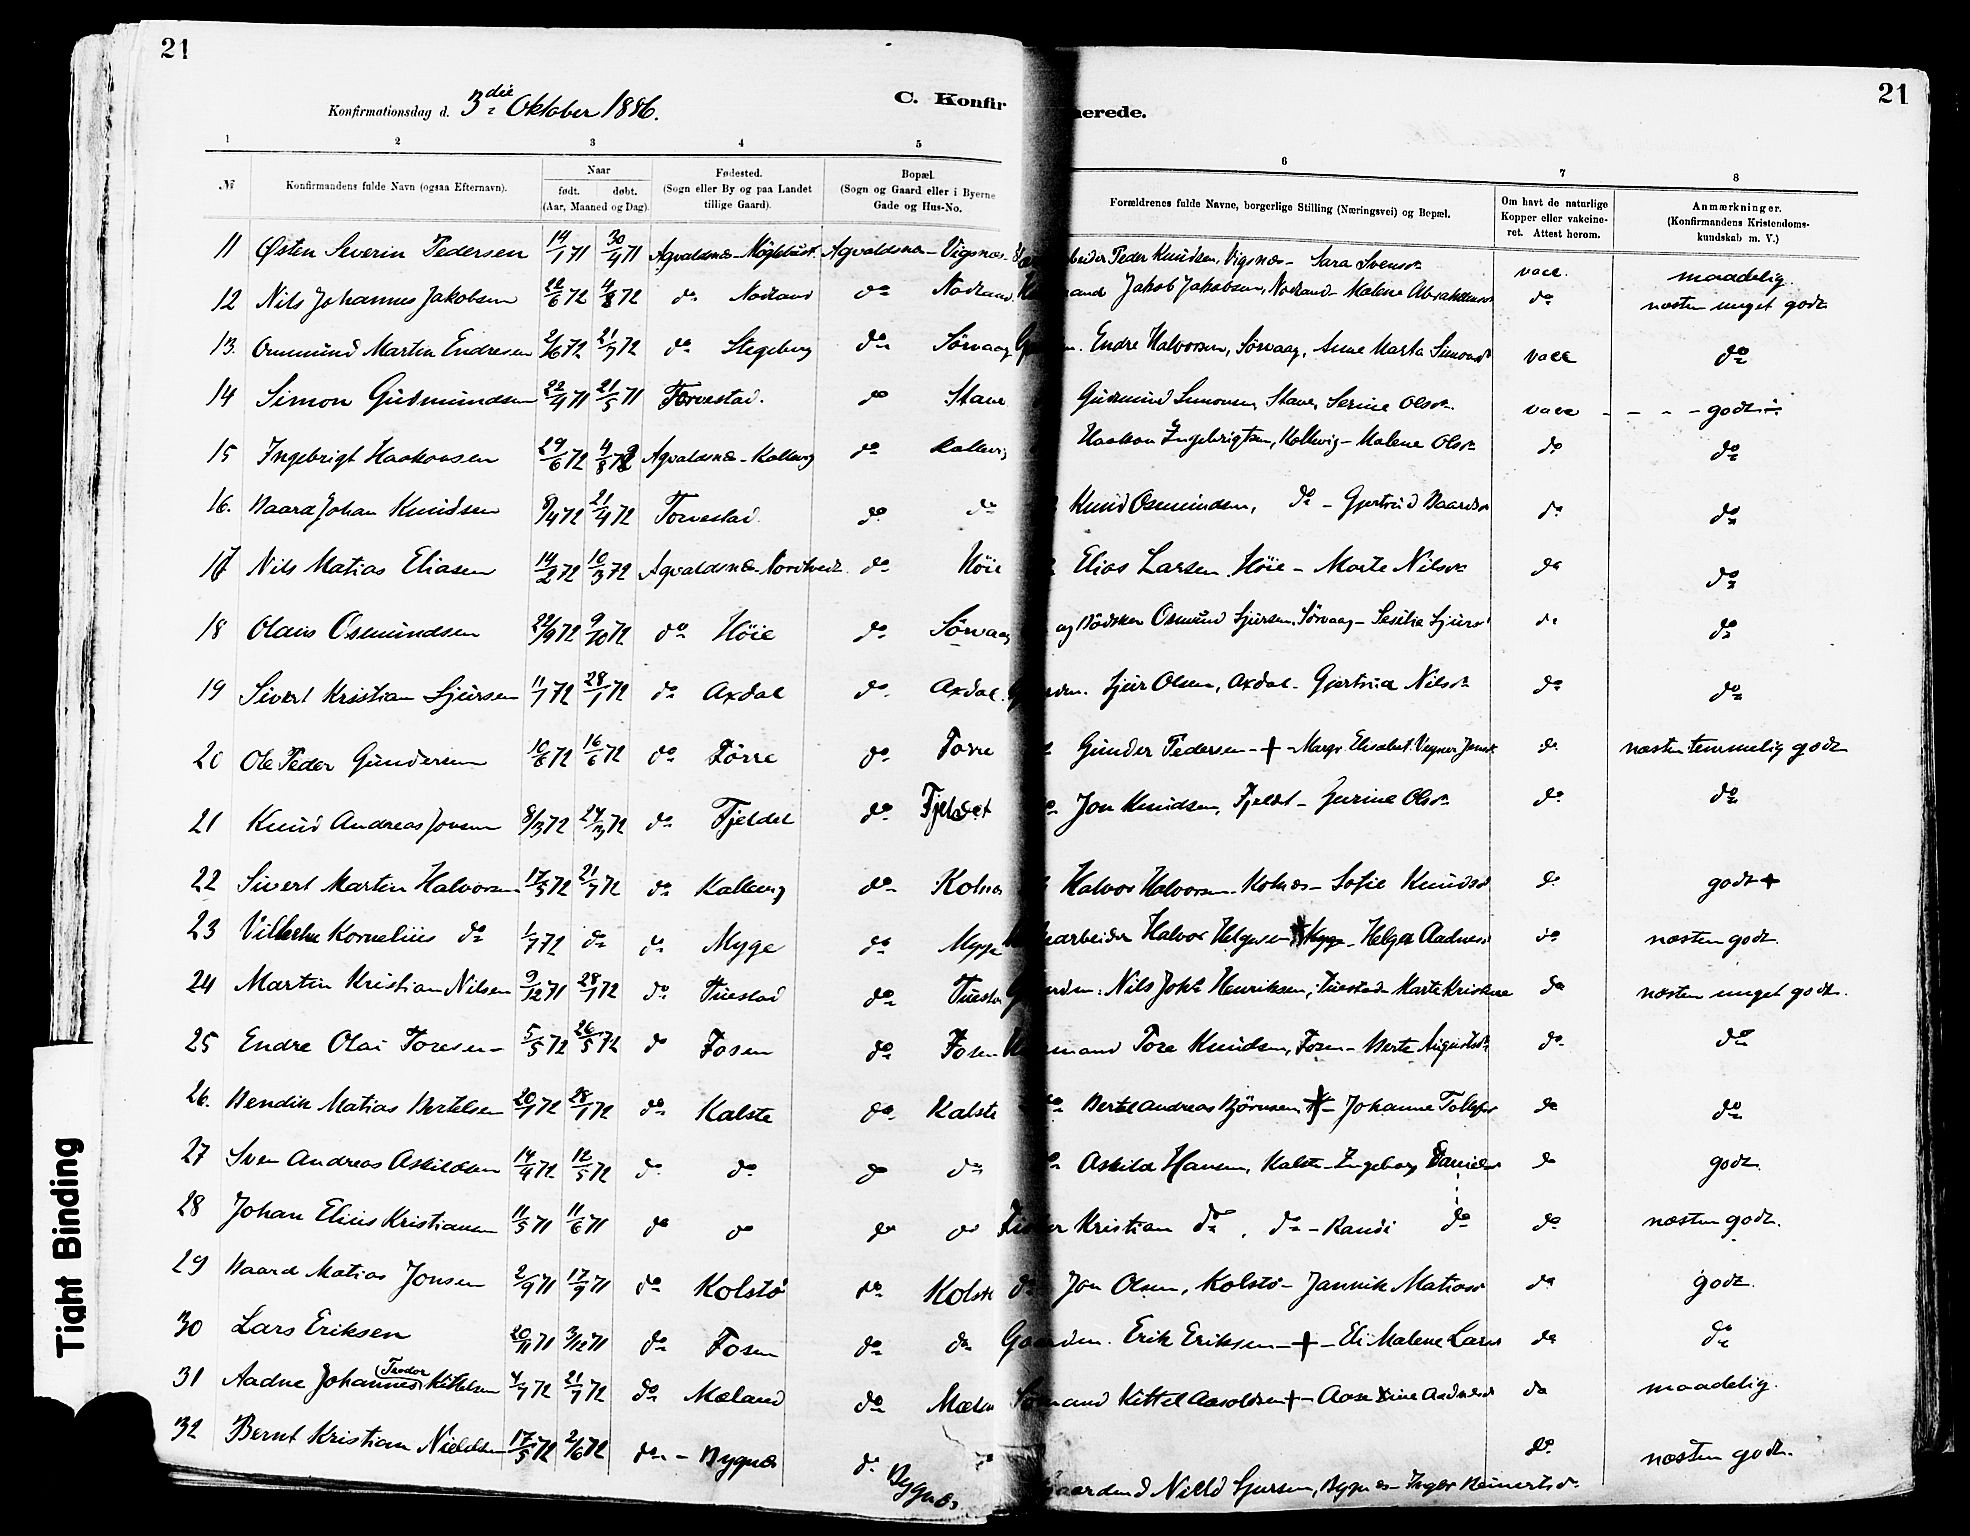 21
21
Konfirmationsdag d. 3die Oktober 1886.
C. Konfir
merede.
1 2 3 4 5 6 7 8
№ Konfirmandens fulde Navn (ogsaa Efternavn). Naar født. døbt. (Aar, Maaned og Dag). Fødested. (Sogn eller By og paa Landet tillige Gaard). Bopæl. (Sogn og Gaard eller i Byerne Gade og Hus-No. Forældrenes fulde Navne, borgerlige Stilling (Næringsvei) og Bopæl. Om havt de naturlige Kopper eller vakcineret. Attest herom. Anmærkninger. (Konfirmandens Kristendomskundskab m. V.)
11 Østen Severin Pedersen 14/1 71 30/4 71 Agvaldsnæs - Agvaldsnæs - Vigsnæs Peder Knudsen, Vigsnæs - Sara Svensdr vacc. maadelig.
12 Nils Johannes Jakobsen 22/6 72 4/8 72 do Nordland do Nordland Jakob Jakobsen, Nordland - Malene do næsten meget godt
13. Ommund Martin Endresen 2/6 72 21/7 72 do Stegeberg do Sørvaag Endre Halvorsen, Sørvaag, Anne Marta Simonsdr vacc do
14 Simon Gudmundsen 22/4 71 21/5 71 Torvestad. do Stave Gudmund Simonsen, Stave, Serine Olsdr vacc - - - - godt
15 Ingebrigt Haakonsen 29/6 72 4/8 72 Agvaldsnæs - Kallevig do Kallevig Haakon Ingebrigtsen, Kallevig - Malene Olsdr do do
16. Baard Johan Knudsen 8/4 72 21/4 72 Torvestad. do do Knud Osmundsen, do - Gjertrud Baardsdr do do
17 Nils Matias Eliasen 14/2 72 10/3 72 Agvaldsnæs do Høie Elias Larsen Høie - Marte Nilsdr do do
18 Olaus Osmundsen 22/9 72 9/10 72 do Høie do Sørvaag og Bødsker Osmund Sjursen, Sørvaag - Sesilie Sjursdr do do
19 Sivert Kristian Sjursen 11/1 72 28/1 72 do Axdal do Axdal. Sjur Olsen, Axdal - Gjertrud Nilsdr do do
20 Ole Peder Gundersen 10/6 72 16/6 72 do Førre do Førre Gunder Pedersen - + - Margr. Elisabet do næsten temmelig godt
21 Knud Andreas Jonsen 8/3 72 24/3 72 do Fjeldet do Fjeldet do Jon Knudsen, Fjeldet - Gurine Olsdr do do
22 Sivert Martin Halvorsen 17/5 72 21/7 72 do Kallevig do Kolnes Halvor Halvorsen - Kolnæs - Sofie Knudsdr do godt +
23 Vilhelm Kornelius do 1/7 72 do do Myge do Myge arbeider Halvor Helgesen Myge - Helga Aadnesdr do næsten godt.
24 Martin Kristian Nilsen 9/12 71 28/1 72 do Tuestad do Tuestad Gaardm. Nils Johs Henriksen, Tuestad Marte Kristine do næsten meget godt.
25 Endre Olai Toresen - 5/5 72 26/5 72 do Fosen do Fosen Tore Knudsen, Fosen - Berte Augustsdr do do
26. Bendik Matias Bertelsen 20/1 72 28/1 72 do Kalstø do Kalstø do Bertel Andreas Bjørnsen + - Johanne do do
27 Sven Andreas Askildsen 14/4 72 12/5 72 do do do do do Askild Hansen, Kalstø - Ingeborg Danielsdr do godt.
28 Johan Elius Kristiansen 11/5 71 11/6 71 do do do do Fisker Kristian do, do - Randi do do næsten godt.
29 Baard Matias Jonsen 2/9 71 17/9 71 do Kolstø do Kolstø do Jon Olsen, Kolstø - Jannik Matiasdr do godt.
30 Lars Eriksen 20/11 71 3/12 71 do Fosen do do Gaardm. Erik Eriksen - + - Eli Malene Larsdr do do
31 Aadne Johannes (Teodor) Kittelsen 4/7 72 21/7 72 do Mæland do Mæland Sømand Kittel Aasoldsen + - Aase Aadnesdr do maadelig.
32 Bernt Kristian Nielsen 17/5 72 2/6 72 do - Bygnæs do Bygnæs Gaardmd Niels Sjursen, Bygnæs - Inger Reinertsdr do næsten godt.
Tight Binding